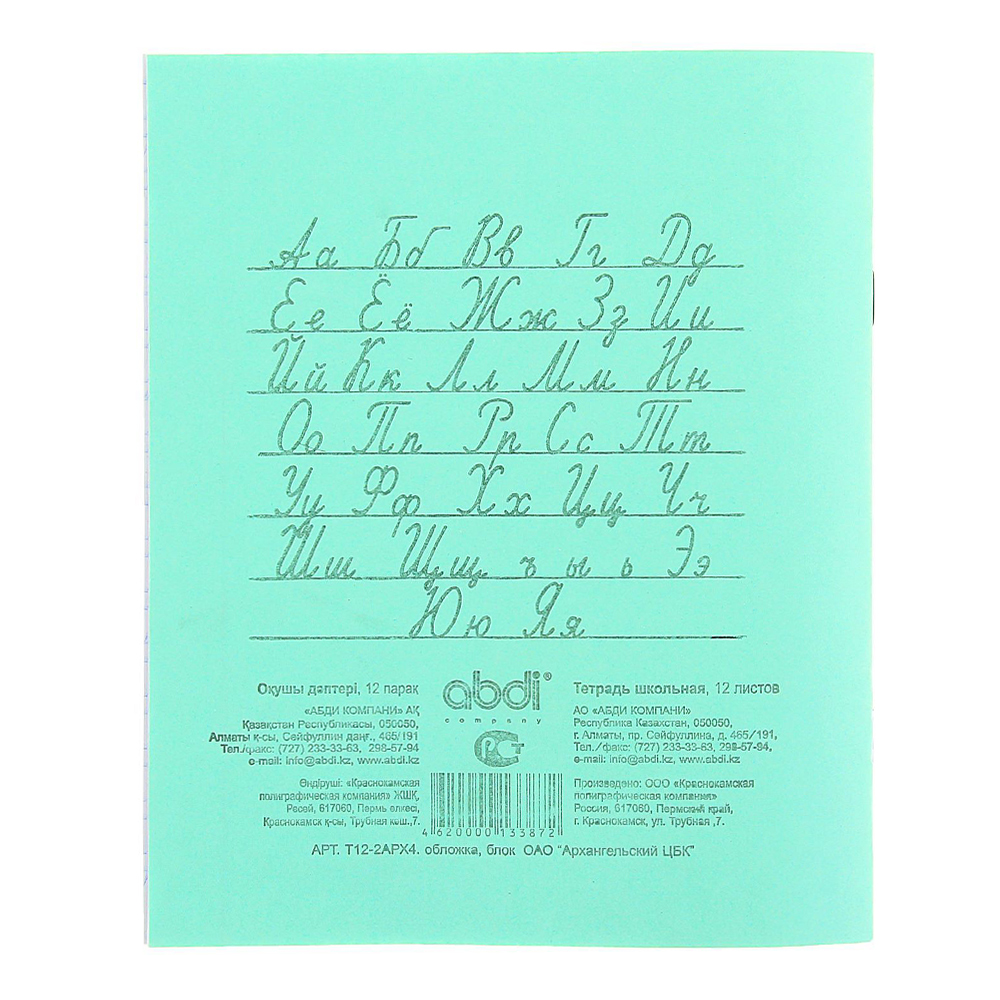 Аа Бб Вв Гг Дд
Ее Ёё Жж Зз Ии
Йй Кк Лл Мм Нн
Оо Пп Рр Сс Тт
Уу Фф Хх Цц Чч
Шш Щщ ъ ы ь Ээ
Юю Яя
Оқушы дәптері, 12 парақ
«АБДИ КОМПАНИ» АҚ
Қазақстан Республикасы, 050050,
Алматы қ-сы, Сейфуллин даңғ., 465/191
Тел./факс: (727) 233-33-63, 298-57-94
e-mail: info@abdi.kz, www.abdi.kz
Өндіруші: «Краснокамская
полиграфическая компания» ЖШҚ,
Ресей, 617060, Пермь өлкесі,
Краснокамск қ-сы, Трубная көш.,7.
abdi®
company
РСТ
4 620000 133872
Тетрадь школьная, 12 листов
АО «АБДИ КОМПАНИ»
Республика Казахстан, 050050,
г. Алматы, пр. Сейфуллина, д. 465/191,
Тел./факс: (727) 233-33-63, 298-57-94,
e-mail: info@abdi.kz, www.abdi.kz
Произведено: ООО «Краснокамская
полиграфическая компания»
Россия, 617060, Пермский край,
г. Краснокамск, ул. Трубная ,7.
АРТ. Т12-2АРХ4. обложка, блок ОАО "Архангельский ЦБК"